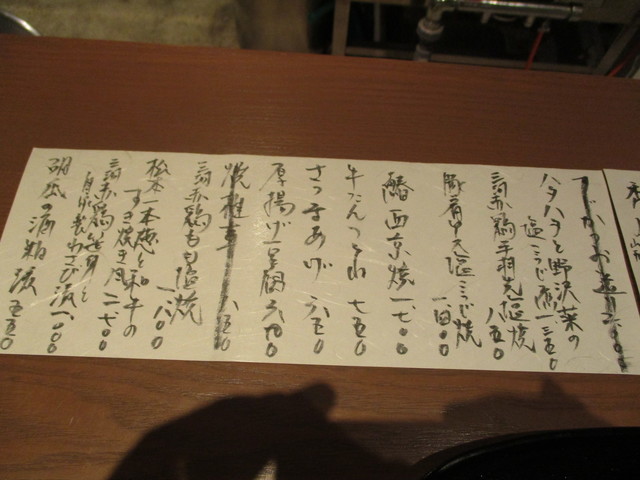 ハタハタと野沢菜の
塩こうじ
一三五〇
三河赤鶏手羽先塩焼
八五〇
豚肩ロース塩こうじ焼
一四〇〇
鰆西京焼 一、七〇〇
牛たんつくね 七五〇
さつまあげ 六五〇
厚揚げ
焼椎茸 八五〇
三河赤鶏もも塩焼
一、八〇〇
松本一本葱と和牛の
すき焼き風 二、七〇〇
三河赤鶏
自家製わさび漬 一、〇〇〇
胡瓜の酒粕漬 五五〇